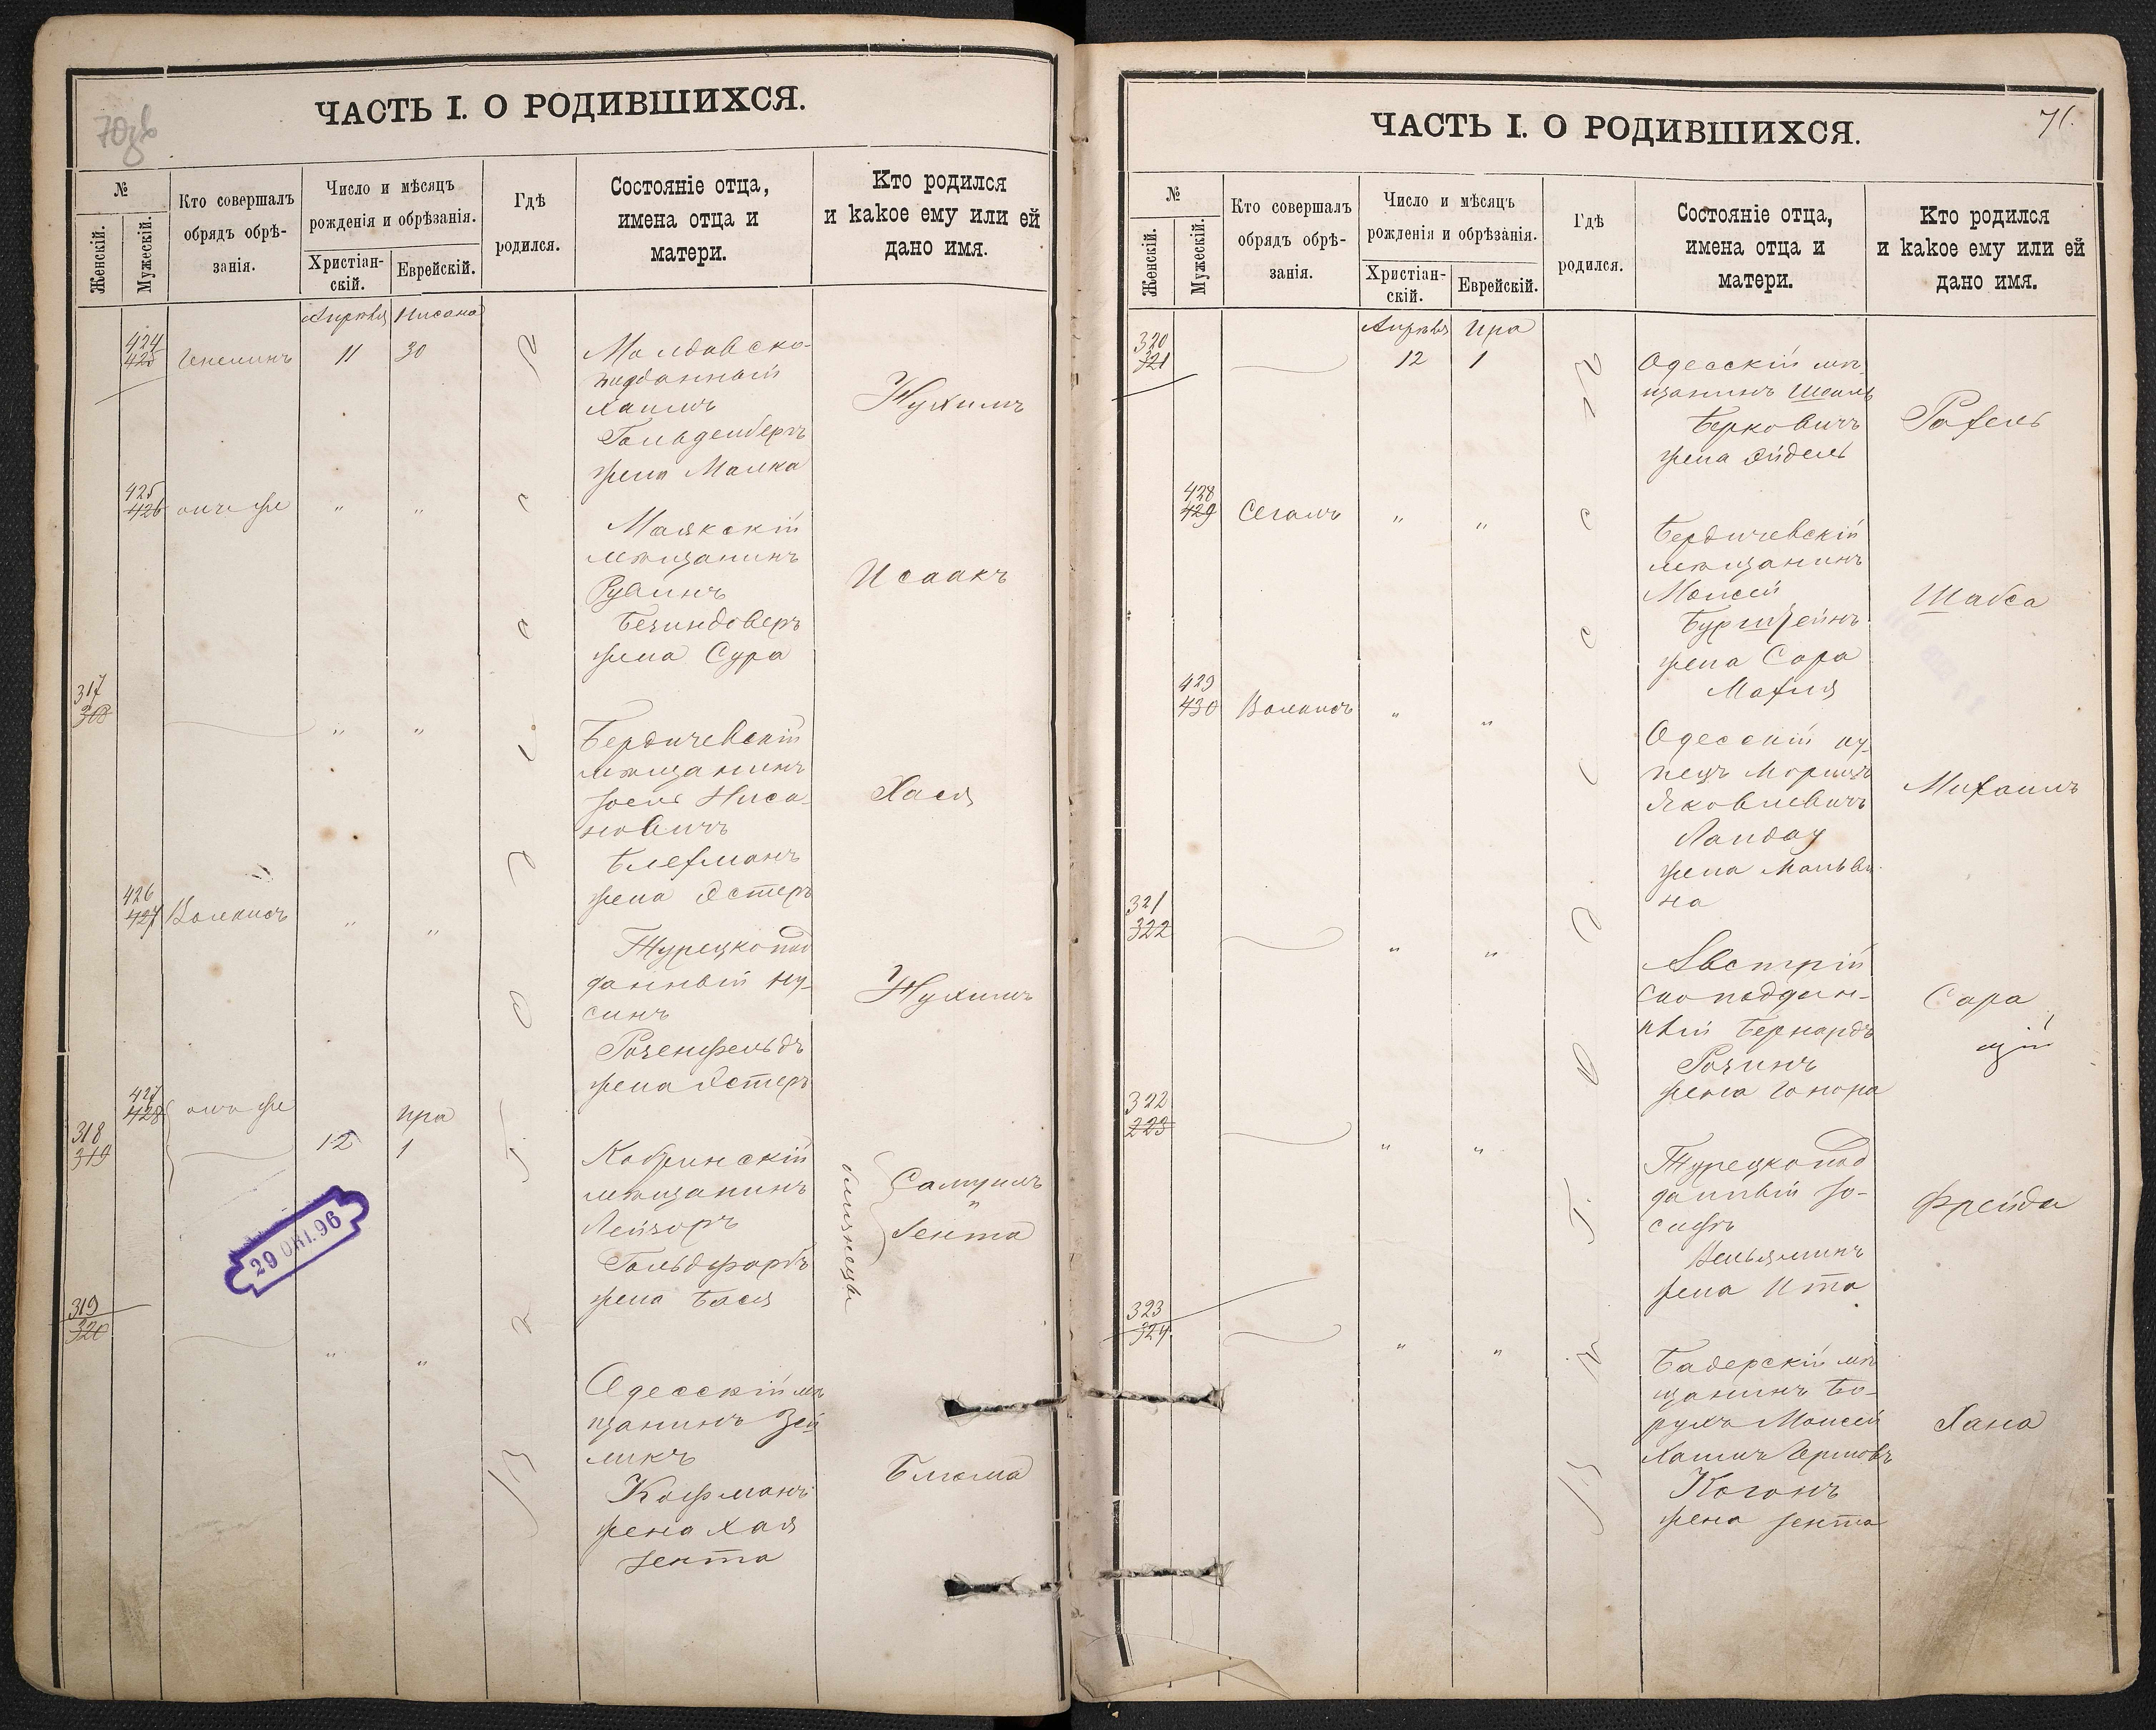 70 об
ЧАСТЬ I. О РОДИВШИХСЯ.
№
Женскій.
Мужескій.
Кто совершалъ
обрядъ обрѣ-
занія.
Число и мѣсяцъ
рожденія и обрѣзанія.
Христіан-
скій.
Еврейскій.
Гдѣ
родился.
Состояніе отца,
имена отца и
матери.
Кто родился
и какое ему или ей
дано имя.
Апрѣля Нисана
424
425
11 30
Молдавско-
подданный
Хаимъ
Гольденбергъ
жена Малка
Нухимъ
425
426 онъ же " "
Маякскій
мѣщанинъ
Рувинъ
Безиндоверъ
жена Сура
Исаакъ
317
318
" "
Бердичевскій
мѣщанинъ
Іосель Ниса-
новичъ
Блехманъ
жена Эстеръ
Хася
426
427 Волкисъ " "
Турецкопод
данный Ну-
синъ
Розенфельдъ
жена Эстеръ
Нухимъ
427
428 онъ же
318
319
Ира
12 1
Кобринскій
мѣщанинъ
Лейзоръ
Гольдфарбъ
жена Бася
близнецы
Самуилъ
"
Іента
29 ОКТ. 96
319
320
" "
Одесскій мѣ
щанинъ Зей
ликъ
Кофманъ
жена Хая
Іента
Блюма
71.
ЧАСТЬ I. О РОДИВШИХСЯ.
№
Женскій.
Мужескій.
Кто совершалъ
обрядъ обрѣ-
занія.
Число и мѣсяцъ
рожденія и обрѣзанія.
Христіан-
скій.
Еврейскій.
Гдѣ
родился.
Состояніе отца,
имена отца и
матери.
Кто родился
и какое ему или ей
дано имя.
Апрѣля Ира
320
321
12 1
Одесскій мѣ
щанинъ Шоилъ
Берковичъ
жена Эйдель
Рахель
428
429 Сегалъ " "
Бердичевскій
мѣщанинъ
Моисей
Бурштейнъ
жена Сара
Махля
Шабса
429
430 Волкисъ " "
Одесскій ку-
пецъ Морицъ
Яковлевичъ
Ландау
жена Мальви-
на
Михаилъ
321
322
" "
Австрій
скоподдан-
ный Бернардъ
Розинъ
жена Гонора
Сара
322
223
" "
Турецкопод
данный Іо-
сифъ
Веньяминъ
жена Ита
Фрейда
323
324
" "
Бадерскій мѣ
щанинъ Бо-
рухъ Моисей
Хаимъ Гершовъ
Когонъ
жена Іента
Хана